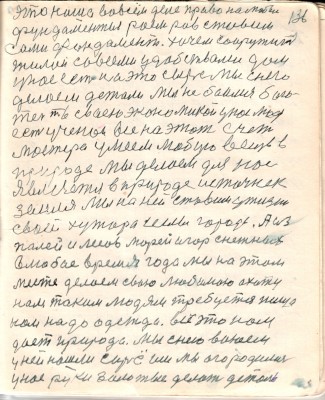 это наше во всём деле право на любой
136
фундамент
сами фундамент. хочем соорудить
жилой со всеми удобствами дом
у нас есть на это сырё мы с него
делаем детали мы не боимся бого
теть своей экономикой у нас люд
есть учёнов все на этот счёт
мостера умеем любую вещь в
природе мы делаем для нас
в природе источнек
земля мы на ней ставим
свой хутора сёлы города. А из
полей и лесов морей и гор снежных
в любое время года мы на этом
месте делаем свою любимою охоту
нам таким людям требуется пищо
нам надо одежда. всё это нам
дает природа. Мы с него воюем
у ней нашли сырё им мы огородились
у нас руки золотые делать деталь